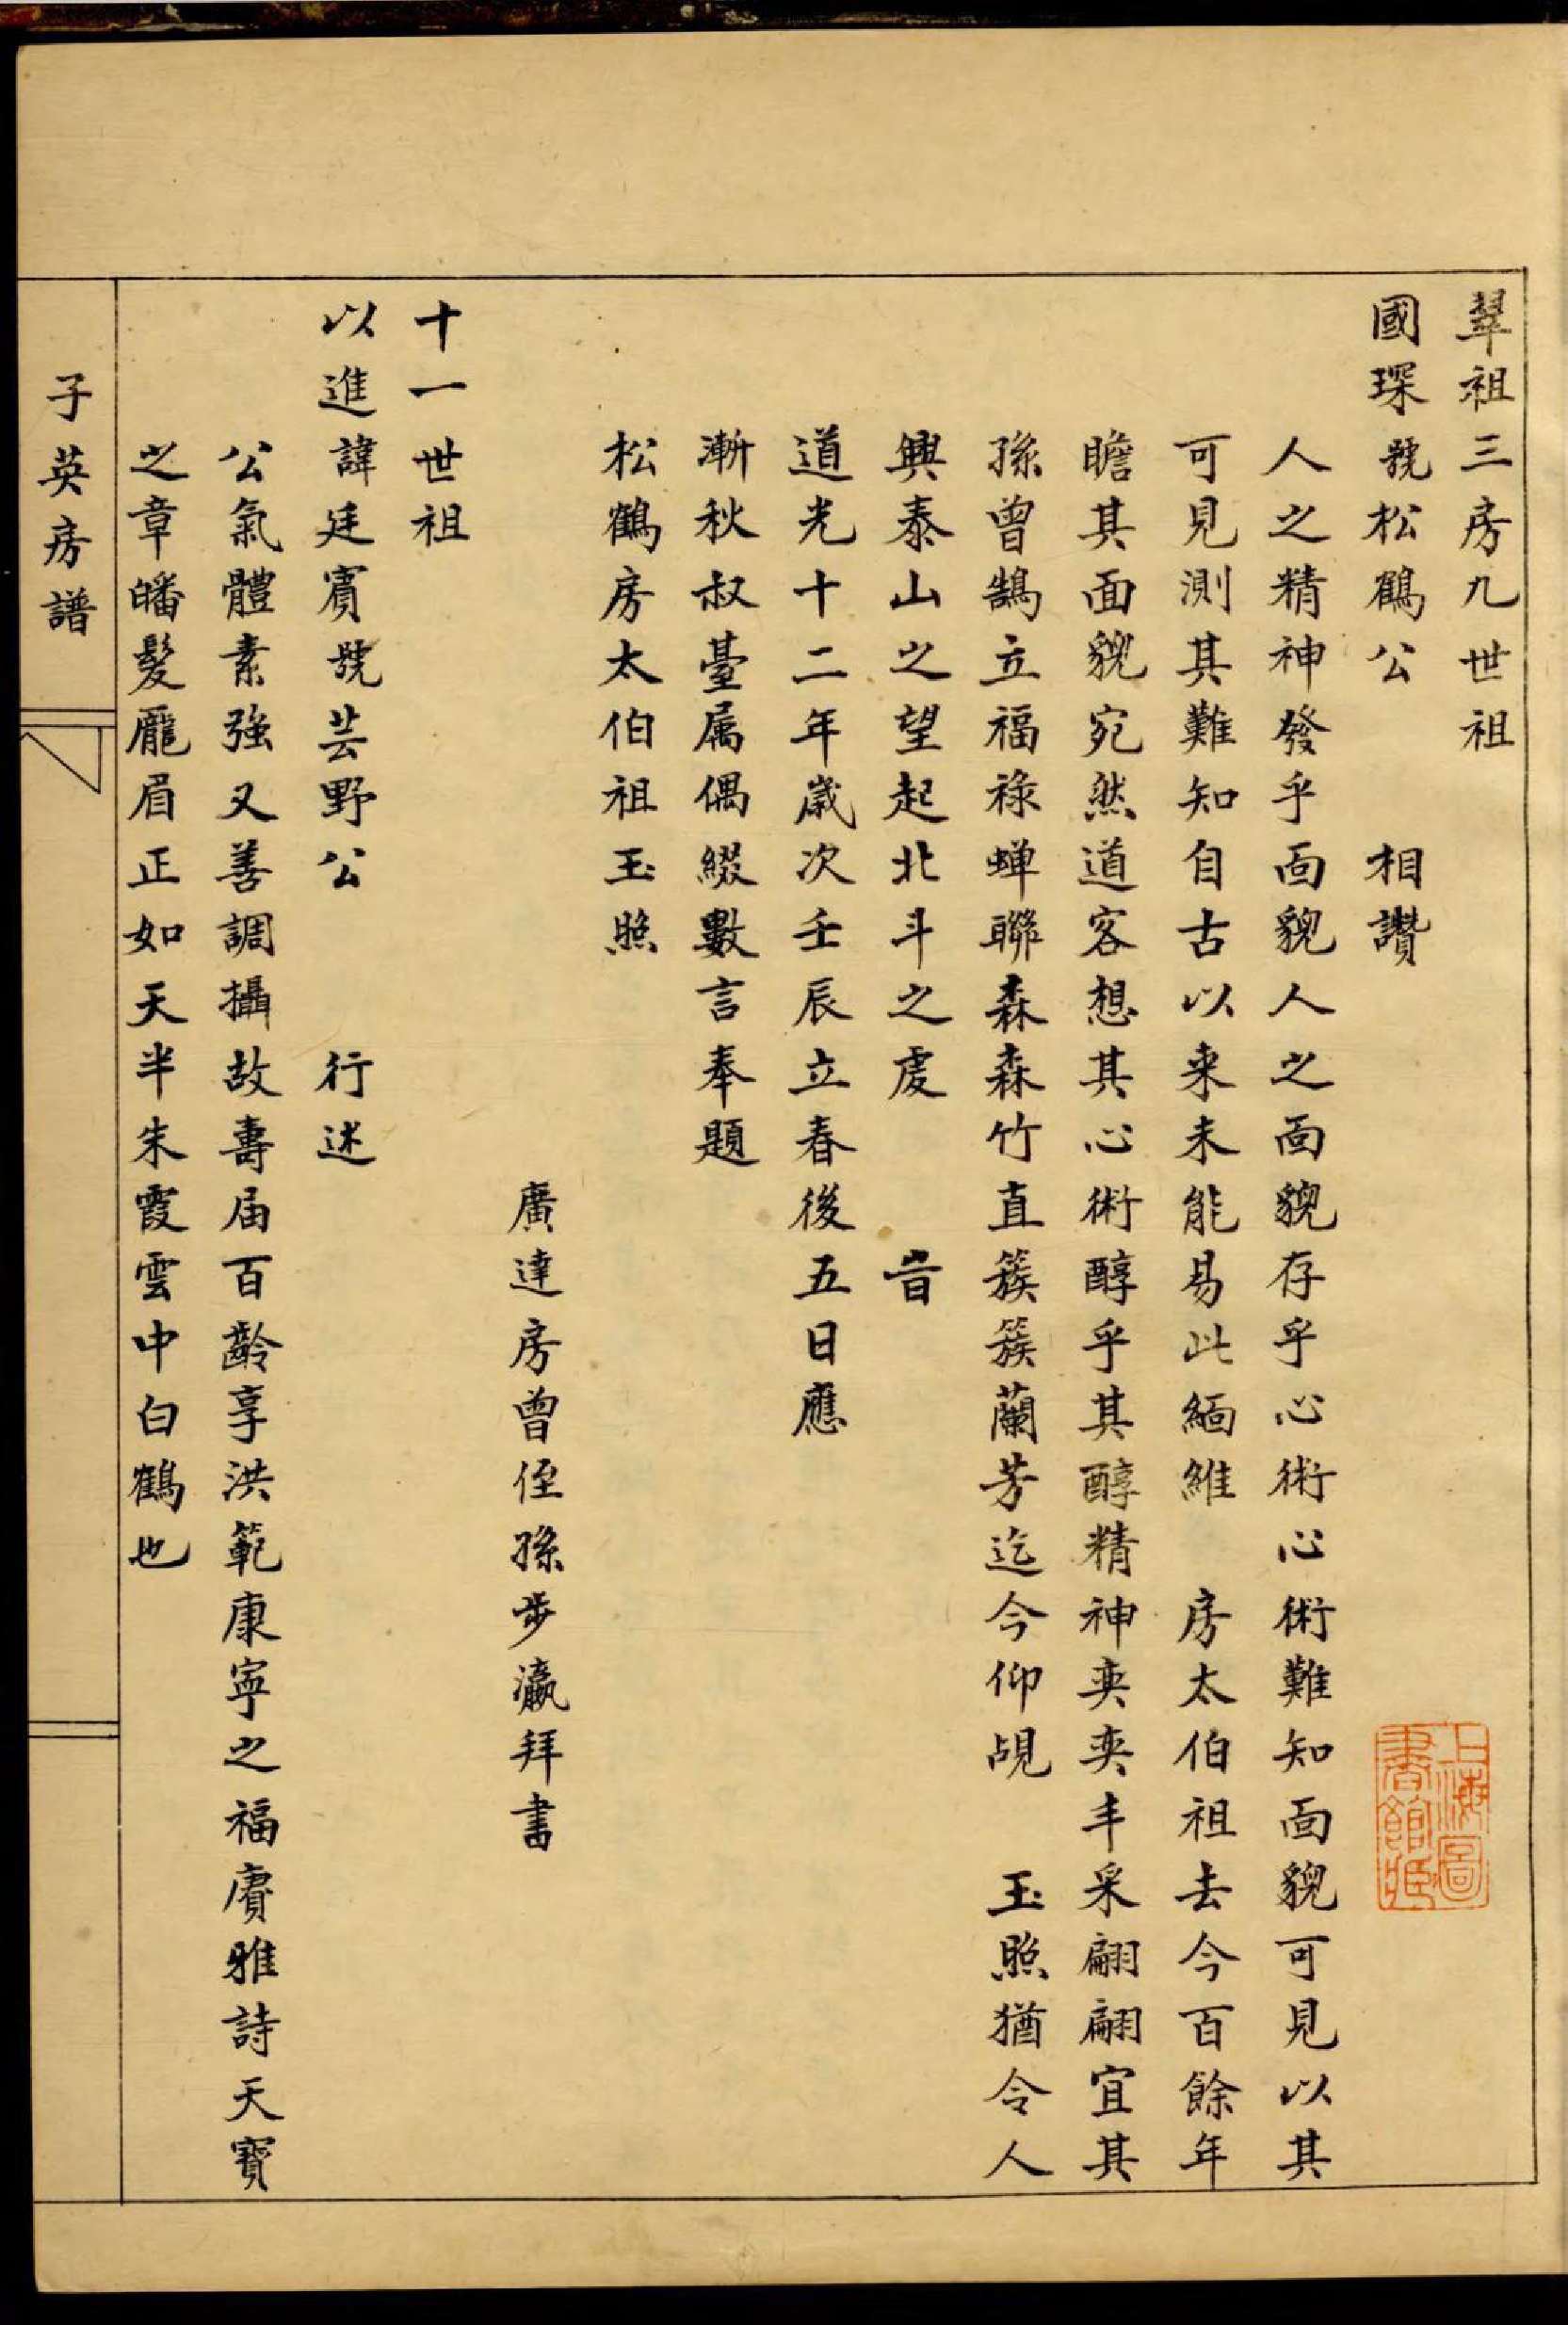 翠祖三房九世祖
國琛號松鶴公 相讚
人之精神發乎面貌人之面貌存乎心術心術難知面貌可見以其
可見測其難知自古以来未能易此緬維 房太伯祖去今百餘年
瞻其面貌宛然道容想其心術醇乎其醇精神奕奕丰采翩翩宜其
孫曾鵠立福祿蟬聯森森竹直簇簇蘭芳迄今仰覘 玉照猶令人
興泰山之望起北斗之虔 旹
道光十二年歲次壬辰立春後五日應
漸秋叔臺属偶綴數言奉題
松鶴房太伯祖玉照
廣達房曾侄孫步瀛拜書
十一世祖
以進諱廷賓號芸野公 行述
公氣體素強又善調攝故壽届百齡享洪範康寧之福賡雅詩天寶
之章皤髮龎眉正如天半朱霞雲中白鶴也
子英房譜
上海圖書館藏